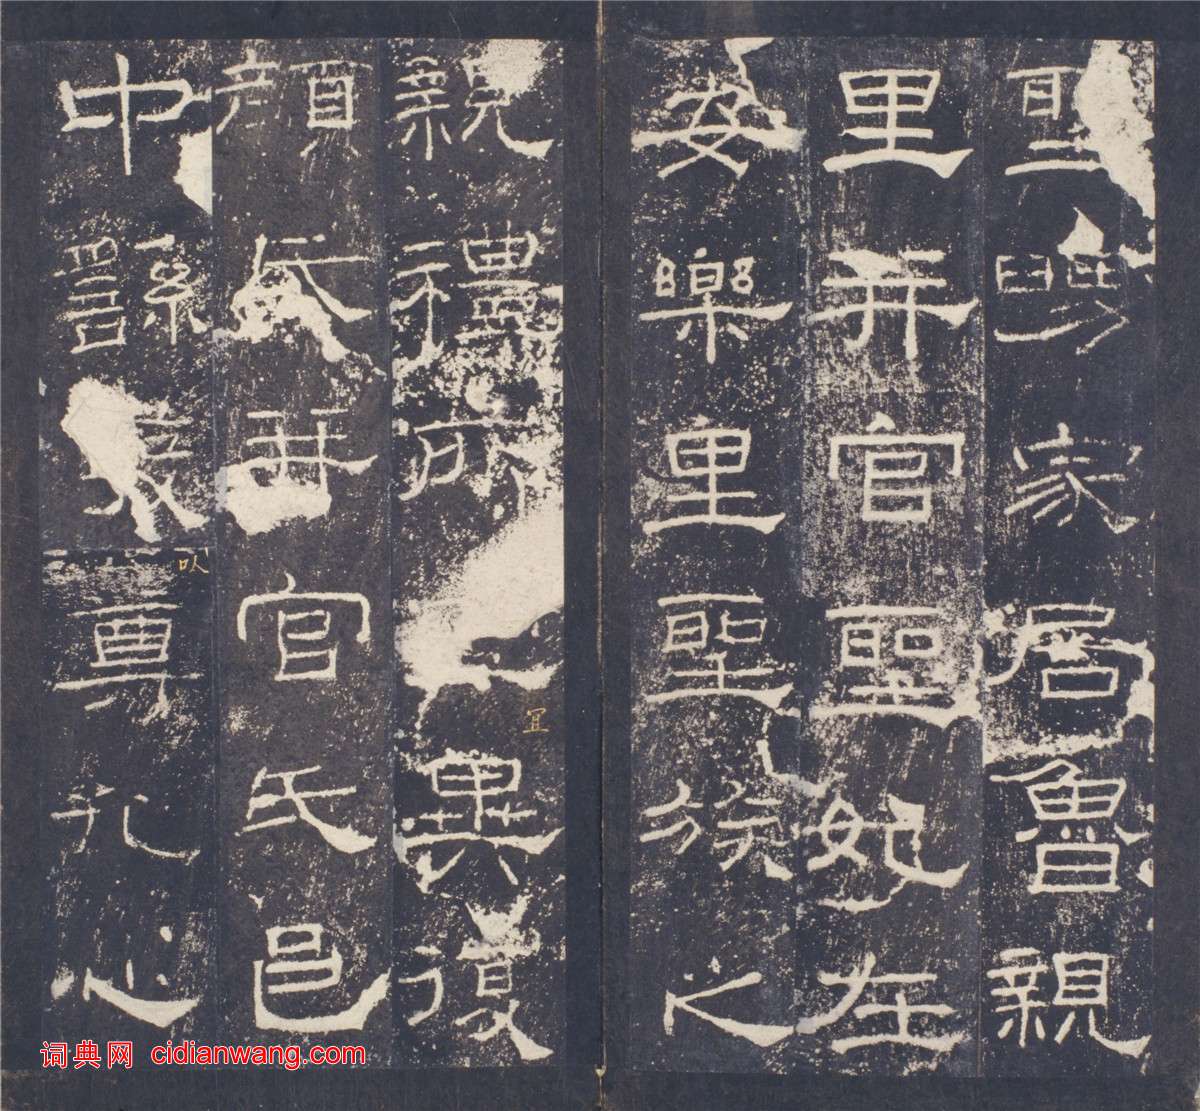 聖舅家居魯親
里并官聖妃在
安樂里聖族之
親禮所冝異復
顏氏并官氏邑
中繇發㕥尊孔心
词典网 cidianwang.com